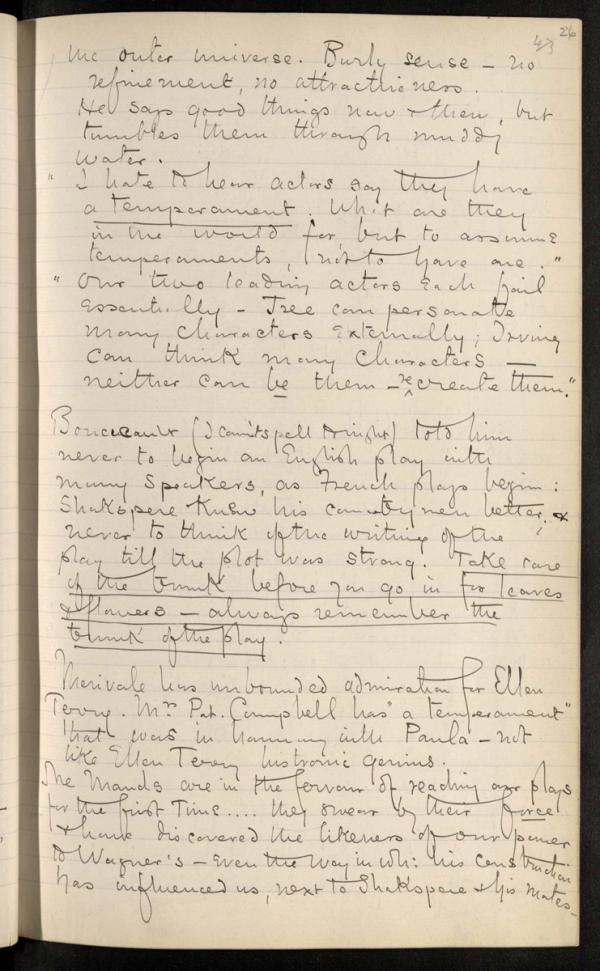 26
43
the outer universe. Burly sense – no
refinement, no attractiveness.
He says good things now & then, but
tumbles them through muddy
water.
" I hate to hear actors say they have
a temperament. What are they
in the world for, but to assume
temperaments, not to have one."
" Our two leading actors each fail
essentially – Tree can personate
many characters externally; Irving
can think many characters –
neither can be them – re create them."
Boucicault (I can't spell tonight) told him
never to begin an English play with
many speakers, as French plays begin:
Shakspere knew his countrymen better; &
never to think of the writing of the
play till the plot was strong. Take care
of the trunk before you go in for leaves
& flowers – always remember the
trunk of the play.
Merivale has unbounded admiration for Ellen
Terry. Mrs Pat. Campbell has "a temperament"
that was in harmony with Paula – not
like Ellen Terry histronic genius.
The Mands are in the fervour of reading our plays
for the first Time.... they swear by their force
& have discovered the likeness of our power
to Wagner's – even the way in wh: his construction
has influenced us, next to Shakspere & his mates –